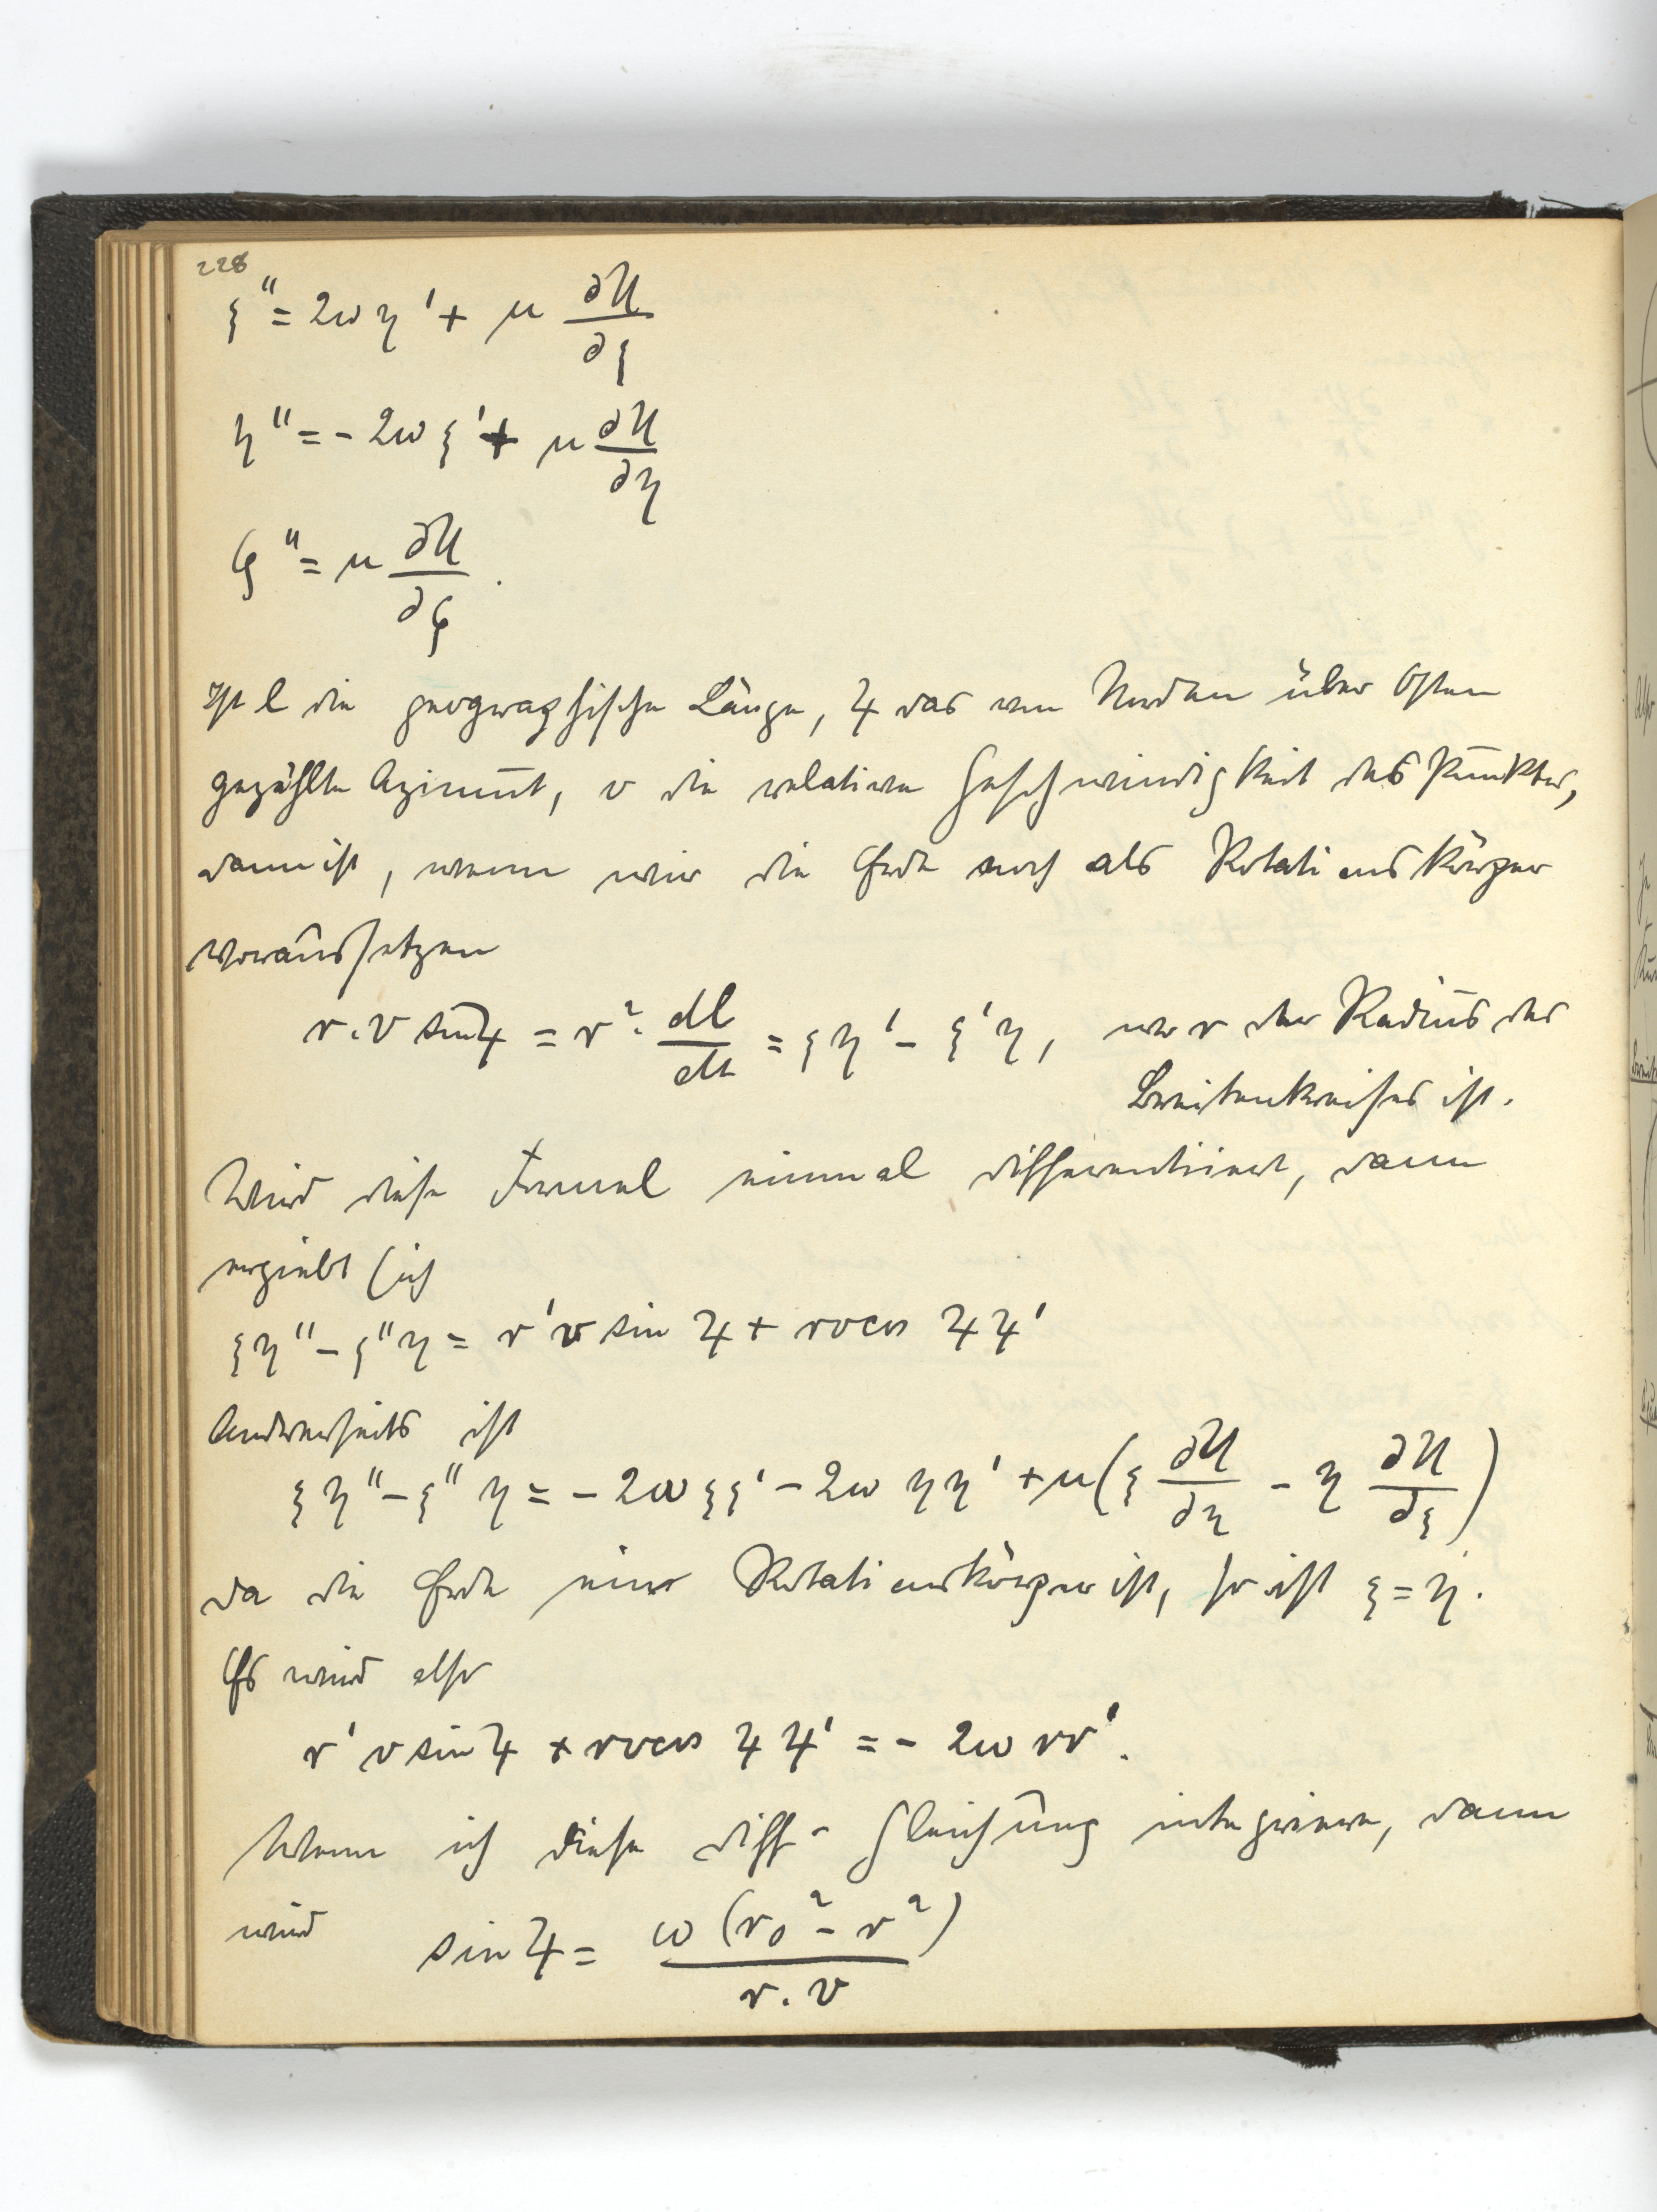 228
ξ'' = 2ω η' + μ ∂U/∂ξ
η'' = - 2ω ξ' + μ ∂U/∂η
ζ'' = μ ∂U/∂ζ.
Ist l die geographische Länge, ϑ das von Norden über Osten
gezählte Azimut, v die relative Geschwindigkeit des Punktes,
dann ist, wenn wir die Erde noch als Rotationskörper
voraussetzen
r.v sin ϑ = r². dl/dt = ξη' - ξ'η, wo r der Radius des
Breitenkreises ist.
Wird diese Formel einmal differentiiert, dann
ergiebt sich
ξη'' - ξ''η = r'v sin ϑ + rv cos ϑ ϑ'
Andererseits ist
ξη'' - ξ''η = - 2ω ξξ' - 2ω ηη' + μ(ξ ∂U/∂η - η ∂U/∂ξ)
Da die Erde ein Rotationskörper ist, so ist ξ = η.
Es wird also
r' v sin ϑ + rv cos ϑ ϑ' = - 2ω rr'.
Wenn ich diese Diff-Gleichung integriere, dann
wird sin ϑ = ω (r₀² - r²)/r.v